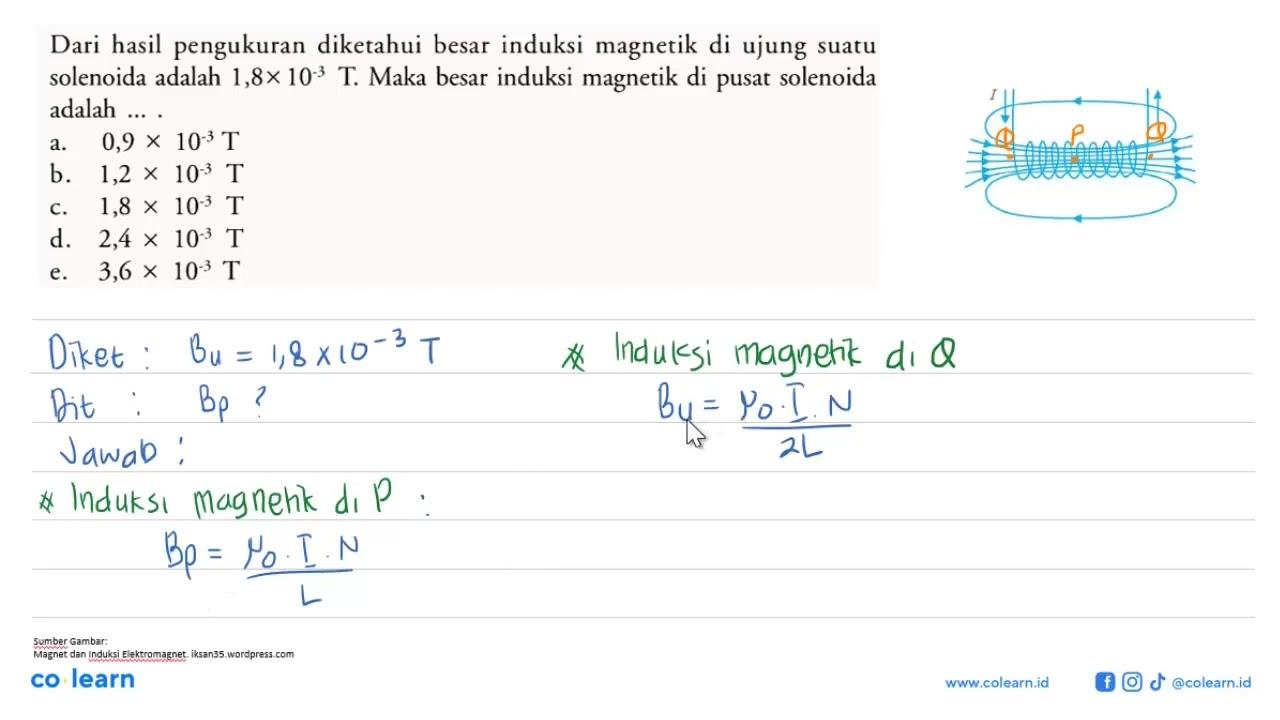 Dari hasil pengukuran diketahui besar induksi magnetik di ujung suatu
solenoida adalah 1,8×10⁻³ T. Maka besar induksi magnetik di pusat solenoida
adalah ... .
a. 0,9 × 10⁻³ T
b. 1,2 × 10⁻³ T
c. 1,8 × 10⁻³ T
d. 2,4 × 10⁻³ T
e. 3,6 × 10⁻³ T
I
Q P Q
Diket : Bu = 1,8 × 10⁻³ T
Dit : Bp ?
Jawab :
* Induksi magnetik di P :
Bp = μ₀ . I . N
L
* Induksi magnetik di Q
Bu = μ₀ . I . N
2L
Sumber Gambar:
Magnet dan Induksi Elektromagnet. iksan35.wordpress.com
co learn
www.colearn.id
@colearn.id